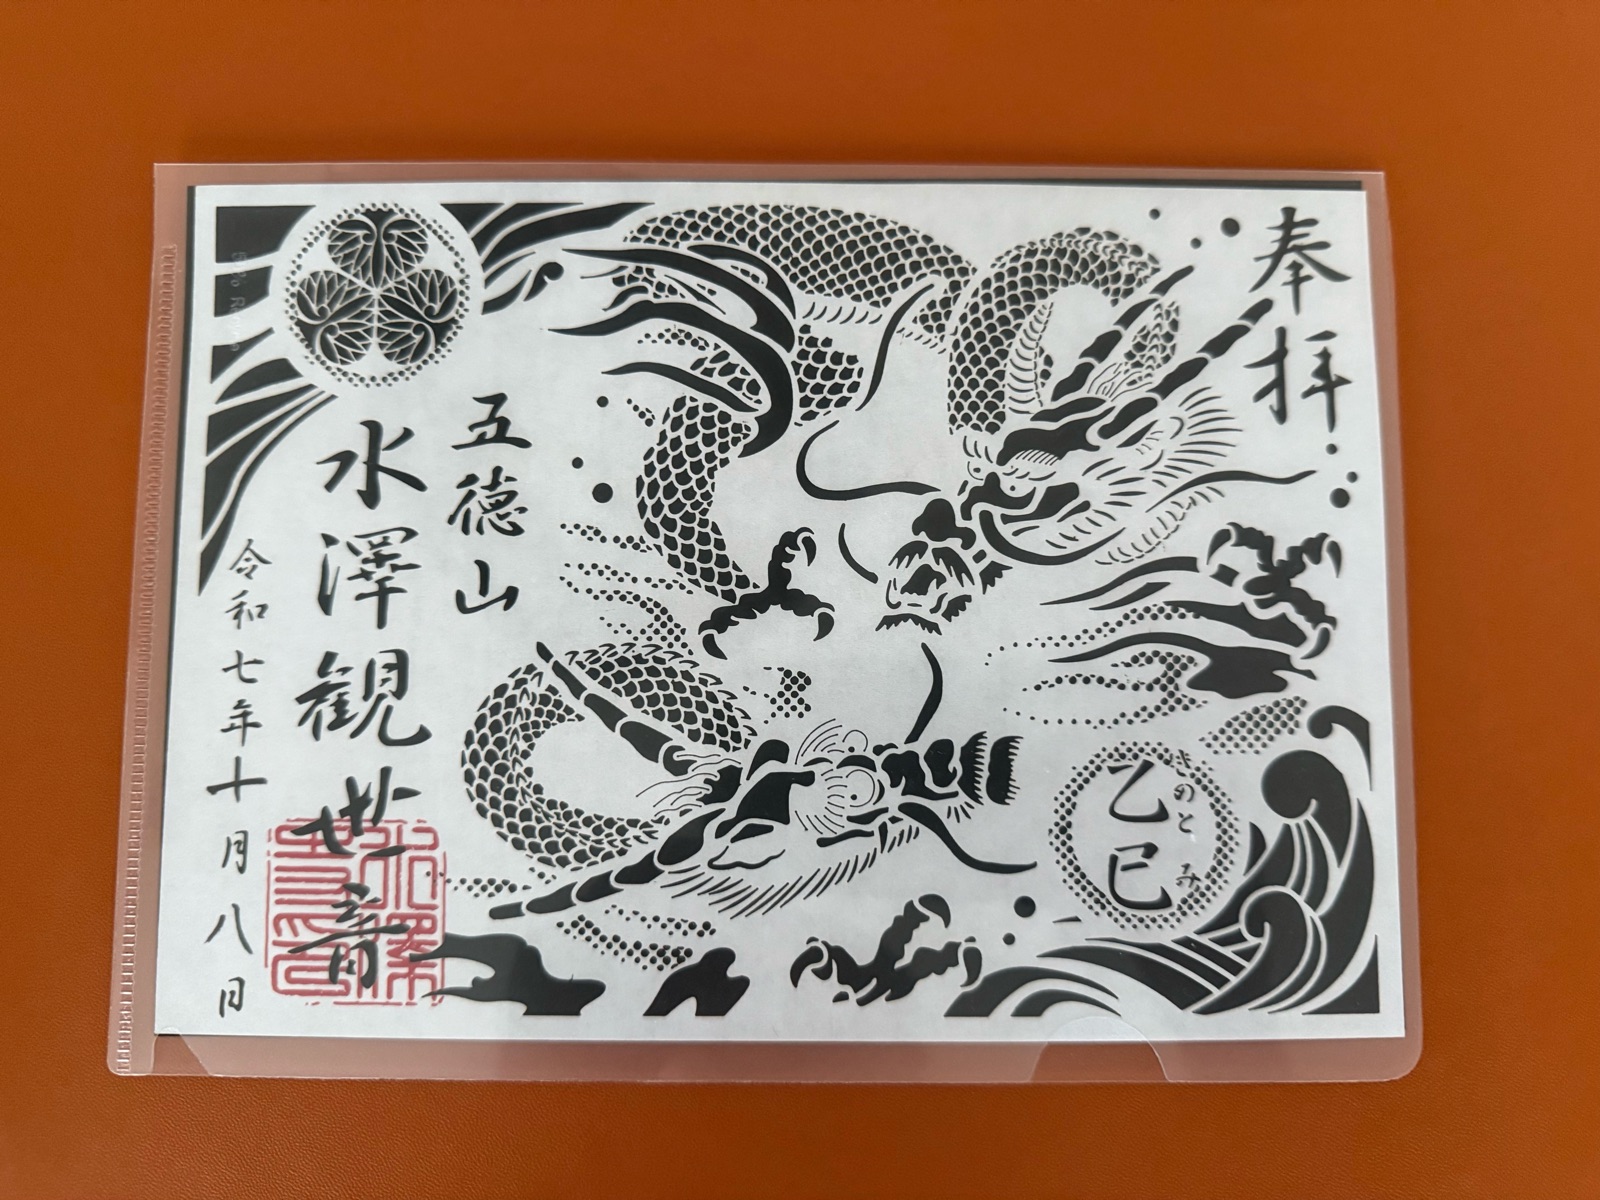 奉拝
乙巳
きのとみ
五徳山
水澤観世音
令和七年十月八日